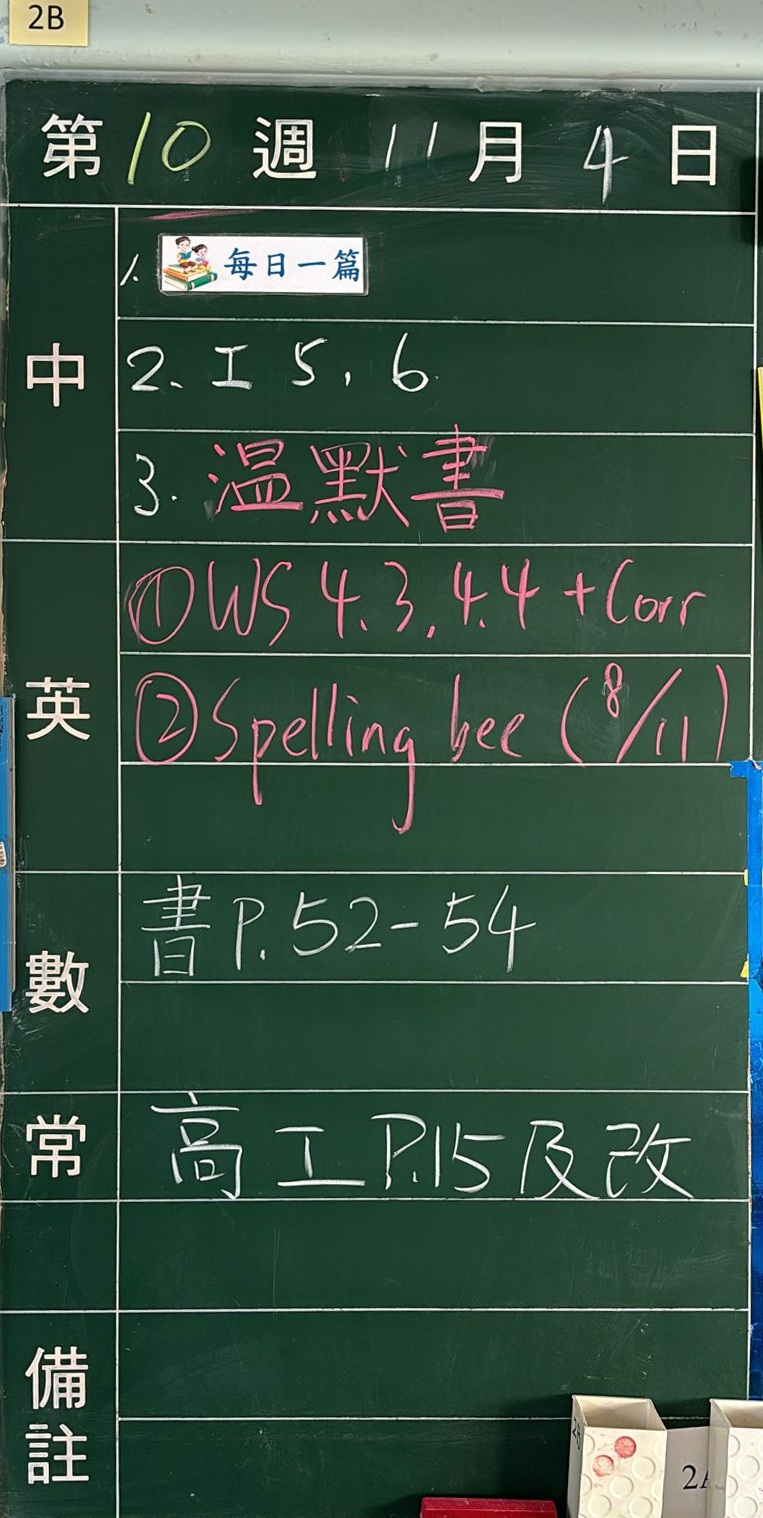 2B
第10週 11月4日
中
1. 每日一篇
2. 工 5, 6
3. 溫默書
英
①WS 4.3, 4.4 + Corr
②Spelling bee (8/11)
數
書P.52-54
常
高工P.15及改
備註